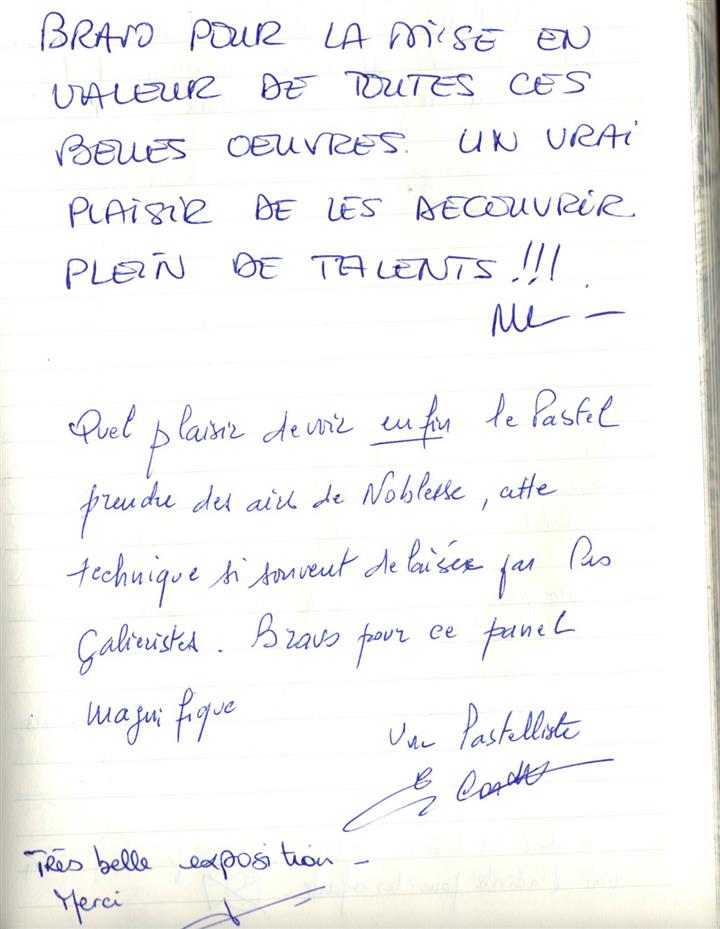 BRAVO POUR LA MISE EN
VALEUR DE TOUTES CES
BELLES OEUVRES. UN VRAI
PLAISIR DE LES DECOUVRIR.
PLEIN DE TALENTS !!!
Quel plaisir de voir enfin le Pastel
prendre des airs de Noblesse, cette
technique si souvent delaisée par les
Galieristes. Bravo pour ce panel
magnifique
Une Pastelliste
Très belle exposition -
Merci